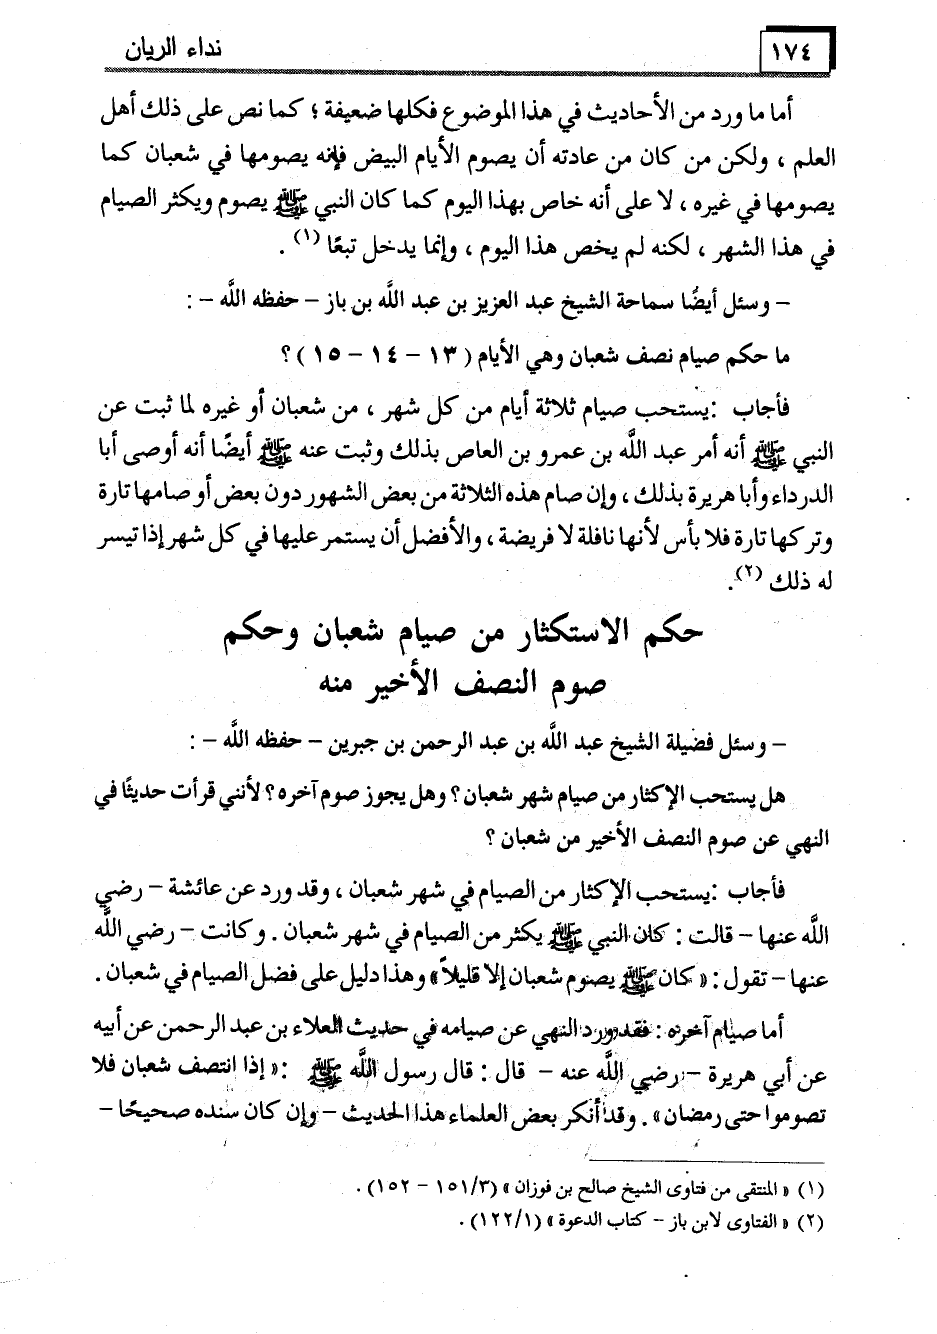 ١٧٤
نداء الريان
أما ما ورد من الأحاديث في هذا الموضوع فكلها ضعيفة ؛ كما نص على ذلك أهل
العلم ، ولكن من كان من عادته أن يصوم الأيام البيض فإنه يصومها في شعبان كما
يصومها في غيره ، لا على أنه خاص بهذا اليوم كما كان النبي ﷺ يصوم ويكثر الصيام
في هذا الشهر ، لكنه لم يخص هذا اليوم ، وإنما يدخل تبعًا (١) .
– وسئل أيضًا سماحة الشيخ عبد العزيز بن عبد اللَّه بن باز – حفظه اللَّه – :
ما حكم صيام نصف شعبان وهي الأيام ( ١٣ – ١٤ – ١٥ ) ؟
فأجاب : يستحب صيام ثلاثة أيام من كل شهر ، من شعبان أو غيره لما ثبت عن
النبي ﷺ أنه أمر عبد اللَّه بن عمرو بن العاص بذلك وثبت عنه ﷺ أيضًا أنه أوصى أبا
الدرداء وأبا هريرة بذلك ، وإن صام هذه الثلاثة من بعض الشهور دون بعض أو صامها تارة
وتركها تارة فلا بأس لأنها نافلة لا فريضة ، والأفضل أن يستمر عليها في كل شهر إذا تيسر
له ذلك (٢).
حكم الاستكثار من صيام شعبان وحكم
صوم النصف الأخير منه
– وسئل فضيلة الشيخ عبد اللَّه بن عبد الرحمن بن جبرين – حفظه اللَّه – :
هل يستحب الإكثار من صيام شهر شعبان ؟ وهل يجوز صوم آخره ؟ لأنني قرأت حديثًا في
النهي عن صوم النصف الأخير من شعبان ؟
فأجاب : يستحب الإكثار من الصيام في شهر شعبان ، وقد ورد عن عائشة – رضي
اللَّه عنها – قالت : كان النبي ﷺ يكثر من الصيام في شهر شعبان . وكانت – رضي اللَّه
عنها – تقول : « كان ﷺ يصوم شعبان إلا قليلاً » وهذا دليل على فضل الصيام في شعبان .
أما صيام آخره : فقد ورد النهي عن صيامه في حديث العلاء بن عبد الرحمن عن أبيه
عن أبي هريرة – رضي اللَّه عنه – قال : قال رسول اللَّه ﷺ : « إذا انتصف شعبان فلا
تصوموا حتى رمضان » . وقد أنكر بعض العلماء هذا الحديث – وإن كان سنده صحيحًا –
(١) « المنتقى من فتاوى الشيخ صالح بن فوزان » (١٥١/٣ – ١٥٢) .
(٢) « الفتاوى لابن باز – كتاب الدعوة » (١٢٢/١) .